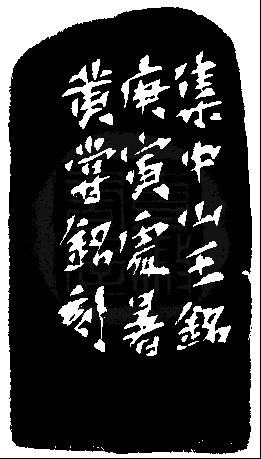 集中山王銘
庚寅處暑
黄嘗銘刻